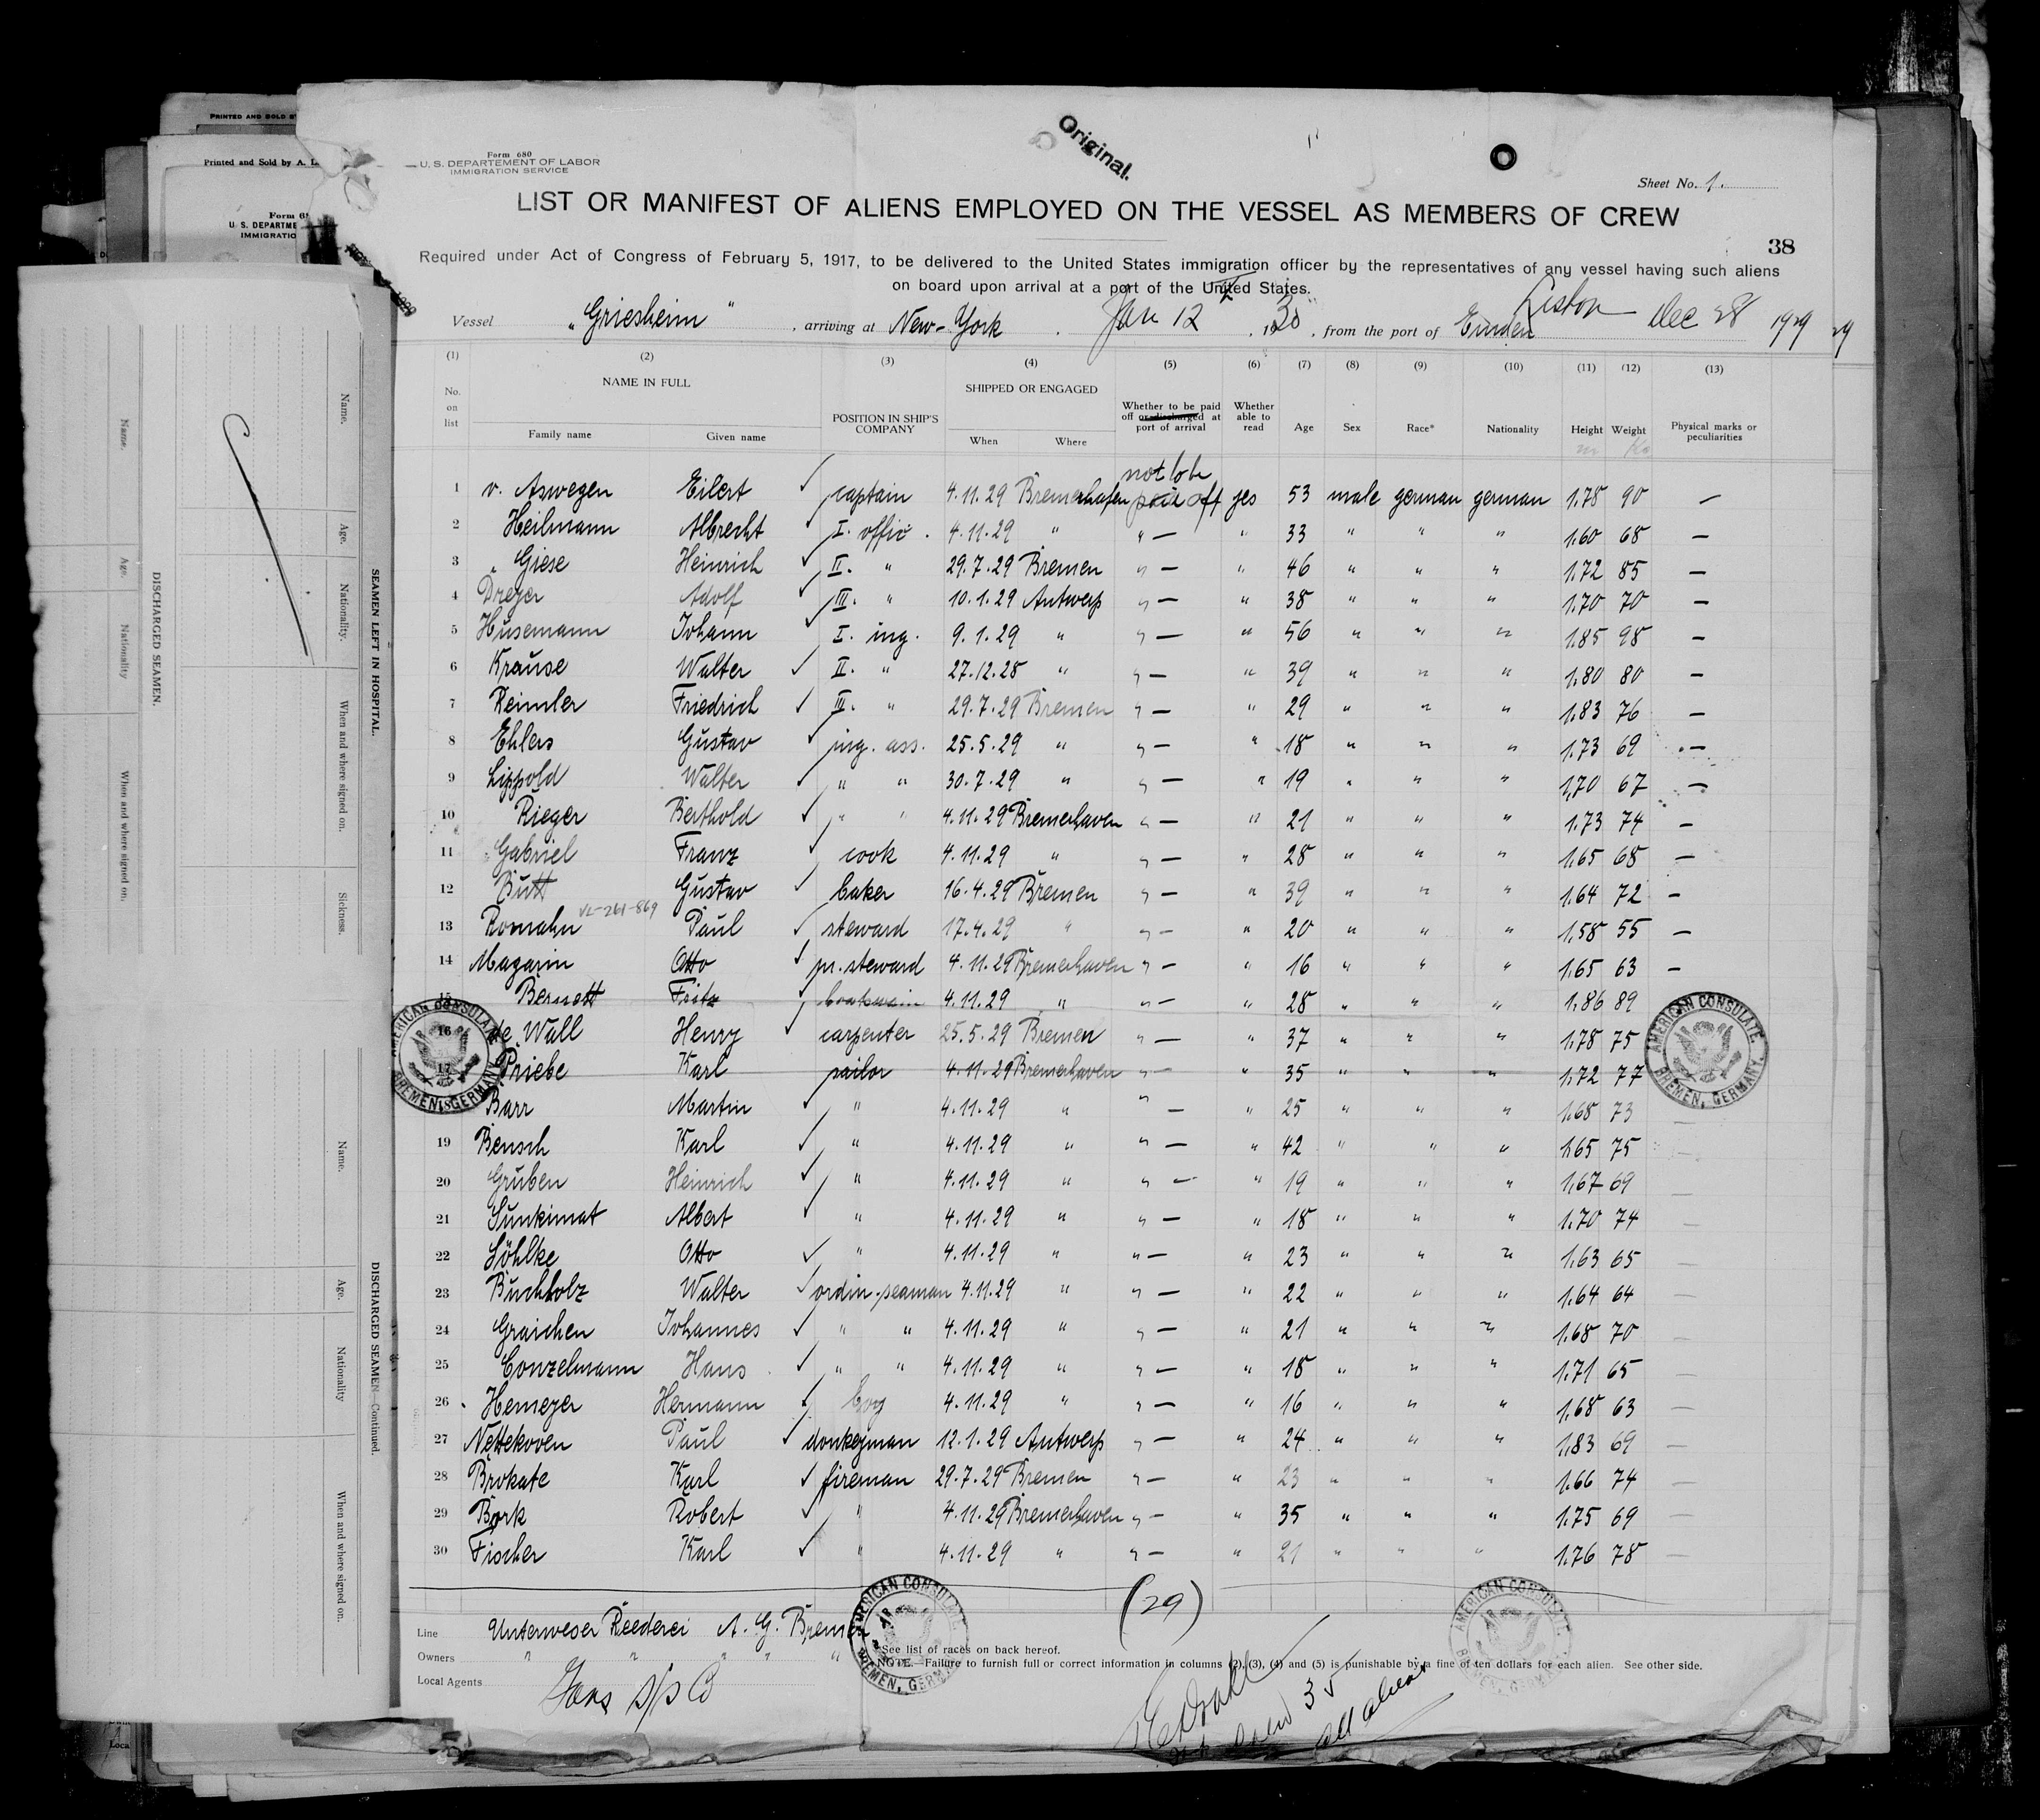 PRINTED AND SOLD
Printed and Sold by A. L
Form 6
U. S. DEPARTME
IMMIGRATIO
Original.
Form 680
U. S. DEPARTEMENT OF LABOR
IMMIGRATION SERVICE
Sheet No. 1.
LIST OR MANIFEST OF ALIENS EMPLOYED ON THE VESSEL AS MEMBERS OF CREW
38
Required under Act of Congress of February 5, 1917, to be delivered to the United States immigration officer by the representatives of any vessel having such aliens
on board upon arrival at a port of the United States.
Vessel „Griesheim“, arriving at New-York. Jan 12, 1930, from the port of Emden Dec 28 1929
(1) (2) (3) (4) (5) (6) (7) (8) (9) (10) (11) (12) (13)
No. on list NAME IN FULL POSITION IN SHIP'S COMPANY SHIPPED OR ENGAGED Whether to be paid off or discharged at port of arrival Whether able to read Age Sex Race* Nationality Height Weight Physical marks or peculiarities
Family name Given name When Where
not to be
1 v. Aswegen Eilert captain 4.11.29 Bremerhafen paid off yes 53 male german german 1.78 90 —
2 Heilmann Albrecht I. offic. 4.11.29 " " — " 33 " " " 1.60 68 —
3 Giese Heinrich II. " 29.7.29 Bremen " — " 46 " " " 1.72 85 —
4 Dreyer Adolf III. " 10.1.29 Antwerp " — " 38 " " " 1.70 70 —
5 Husemann Johann I. ing. 9.1.29 " " — " 56 " " " 1.85 98 —
6 Krause Walter II. " 27.12.28 " " — " 39 " " " 1.80 80 —
7 Reimler Friedrich III. " 29.7.29 Bremen " — " 29 " " " 1.83 76 —
8 Ehlers Gustav ing. ass. 25.5.29 " " — " 18 " " " 1.73 69 —
9 Lippold Walter " " 30.7.29 " " — " 19 " " " 1,70 67 —
10 Rieger Berthold " " 4.11.29 Bremerhaven " — " 21 " " " 1.73 74 —
11 Gabriel Franz cook 4.11.29 " " — " 28 " " " 1.65 68 —
12 Butt Gustav baker 16.4.29 Bremen " — " 39 " " " 1.64 72 —
VL-261-869
13 Romahn Paul steward 17.4.29 " " — " 20 " " " 1,58 55 —
14 Magarin Otto pr. steward 4.11.29 Bremerhaven " — " 16 " " " 1.65 63 —
15 Bernett Fritz boatswain 4.11.29 " " — " 28 " " " 1.86 89
16 de Wall Henry carpenter 25.5.29 Bremen " — " 37 " " " 1.78 75
17 Priebe Karl sailor 4.11.29 Bremerhaven " — " 35 " " " 1.72 77
18 Barr Martin " 4.11.29 " " — " 25 " " " 1.68 73
19 Bensch Karl " 4.11.29 " " — " 42 " " " 1.65 75 —
20 Gruben Heinrich " 4.11.29 " " — " 19 " " " 1,67 69 —
21 Sunkimat Albert " 4.11.29 " " — " 18 " " " 1.70 74 —
22 Söhlke Otto " 4.11.29 " " — " 23 " " " 1.63 65 —
23 Buchholz Walter ordin. seaman 4.11.29 " " — " 22 " " " 1.64 64 —
24 Graichen Johannes " " 4.11.29 " " — " 21 " " " 1.68 70 —
25 Conzelmann Hans " " 4.11.29 " " — " 18 " " " 1.71 65 —
26 Hemeyer Hermann boy 4.11.29 " " — " 16 " " " 1,68 63 —
27 Nettekoven Paul donkeyman 12.1.29 Antwerp " — " 24 " " " 1,83 69 —
28 Brokate Karl fireman 29.7.29 Bremen " — " 23 " " " 1.66 74 —
29 Bork Robert " 4.11.29 Bremerhaven " — " 35 " " " 1.75 69 —
30 Fischer Karl " 4.11.29 " " — " 21 " " " 1.76 78 —
(29)
Line Unterweser Reederei A. G. Bremen
Owners " " " " "
Local Agents
*See list of races on back hereof.
NOTE.—Failure to furnish full or correct information in columns (2), (3), (4) and (5) is punishable by a fine of ten dollars for each alien. See other side.
35
all aliens
AMERICAN CONSULATE, BREMEN, GERMANY.
AMERICAN CONSULATE, BREMEN, GERMANY.
AMERICAN CONSULATE, BREMEN, GERMANY.
AMERICAN CONSULATE, BREMEN, GERMANY.
SEAMEN LEFT IN HOSPITAL.
Name. Age. Nationality. When and where signed on. Sickness.
DISCHARGED SEAMEN.
Name. Age. Nationality When and where signed on.
DISCHARGED SEAMEN—Continued.
Name. Age. Nationality When and where signed on.